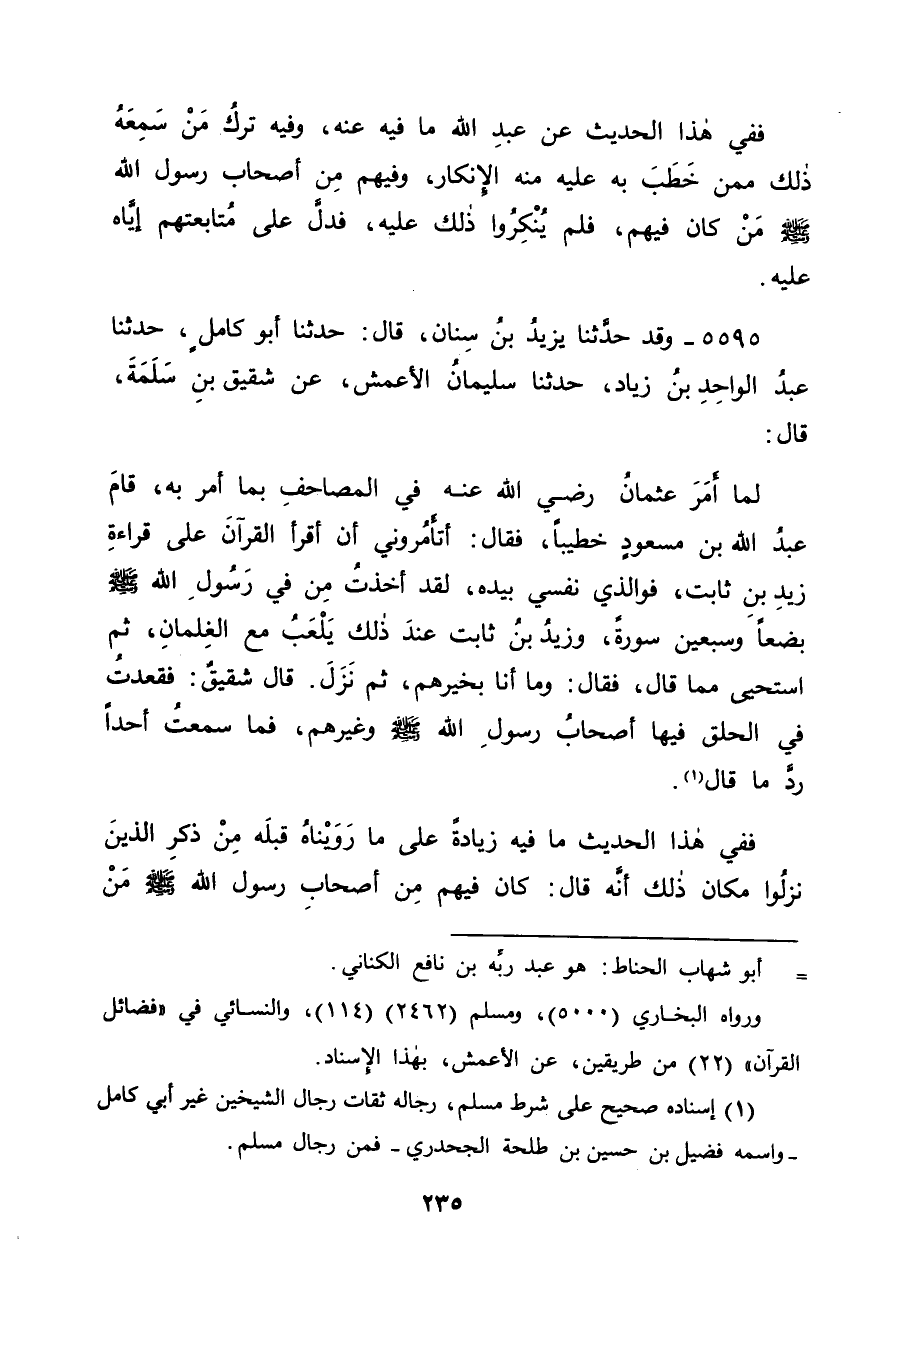 ففي هٰذا الحديث عن عبدِ الله ما فيه عنه، وفيه تركُ مَنْ سَمِعَهُ
ذٰلك ممن خَطَبَ به عليه منه الإِنكار، وفيهم مِن أصحاب رسول الله
ﷺ مَنْ كان فيهم، فلم يُنْكِرُوا ذٰلك عليه، فدلَّ على مُتابعتهم إيَّاه
عليه.
٥٥٩٥ ـ وقد حدَّثنا يزيدُ بنُ سِنان، قال: حدثنا أبو كاملٍ، حدثنا
عبدُ الواحِدِ بنُ زياد، حدثنا سليمانُ الأعمش، عن شقيق بنِ سَلَمَةَ،
قال:
لما أَمَرَ عثمانُ رضي الله عنه في المصاحفِ بما أمر به، قامَ
عبدُ الله بن مسعودٍ خطيباً، فقال: أتأْمُروني أن أقرأ القرآنَ على قراءةِ
زيدِ بنِ ثابت، فوالذي نفسي بيده، لقد أخذتُ مِن في رَسُولِ الله ﷺ
بضعاً وسبعين سورةً، وزيدُ بنُ ثابت عندَ ذٰلك يَلْعَبُ مع الغِلمانِ، ثم
استحيى مما قال، فقال: وما أنا بخيرهم، ثم نَزَلَ. قال شقيقٌ: فقعدتُ
في الحلق فيها أصحابُ رسولِ الله ﷺ وغيرهم، فما سمعتُ أحداً
ردَّ ما قال(١).
ففي هٰذا الحديث ما فيه زيادةً على ما رَوَيْناهُ قبلَه مِنْ ذكرِ الذينَ
نزلُوا مكان ذٰلك أنَّه قال: كان فيهم مِن أصحابِ رسول الله ﷺ مَنْ
= أبو شهاب الحناط: هو عبد ربِّه بن نافع الكناني.
ورواه البخاري (٥٠٠٠)، ومسلم (٢٤٦٢) (١١٤)، والنسائي في «فضائل
القرآن» (٢٢) من طريقين، عن الأعمش، بهٰذا الإِسناد.
(١) إسناده صحيح على شرط مسلم، رجاله ثقات رجال الشيخين غير أبي كامل
ـ واسمه فضيل بن حسين بن طلحة الجحدري ـ فمن رجال مسلم.
٢٣٥